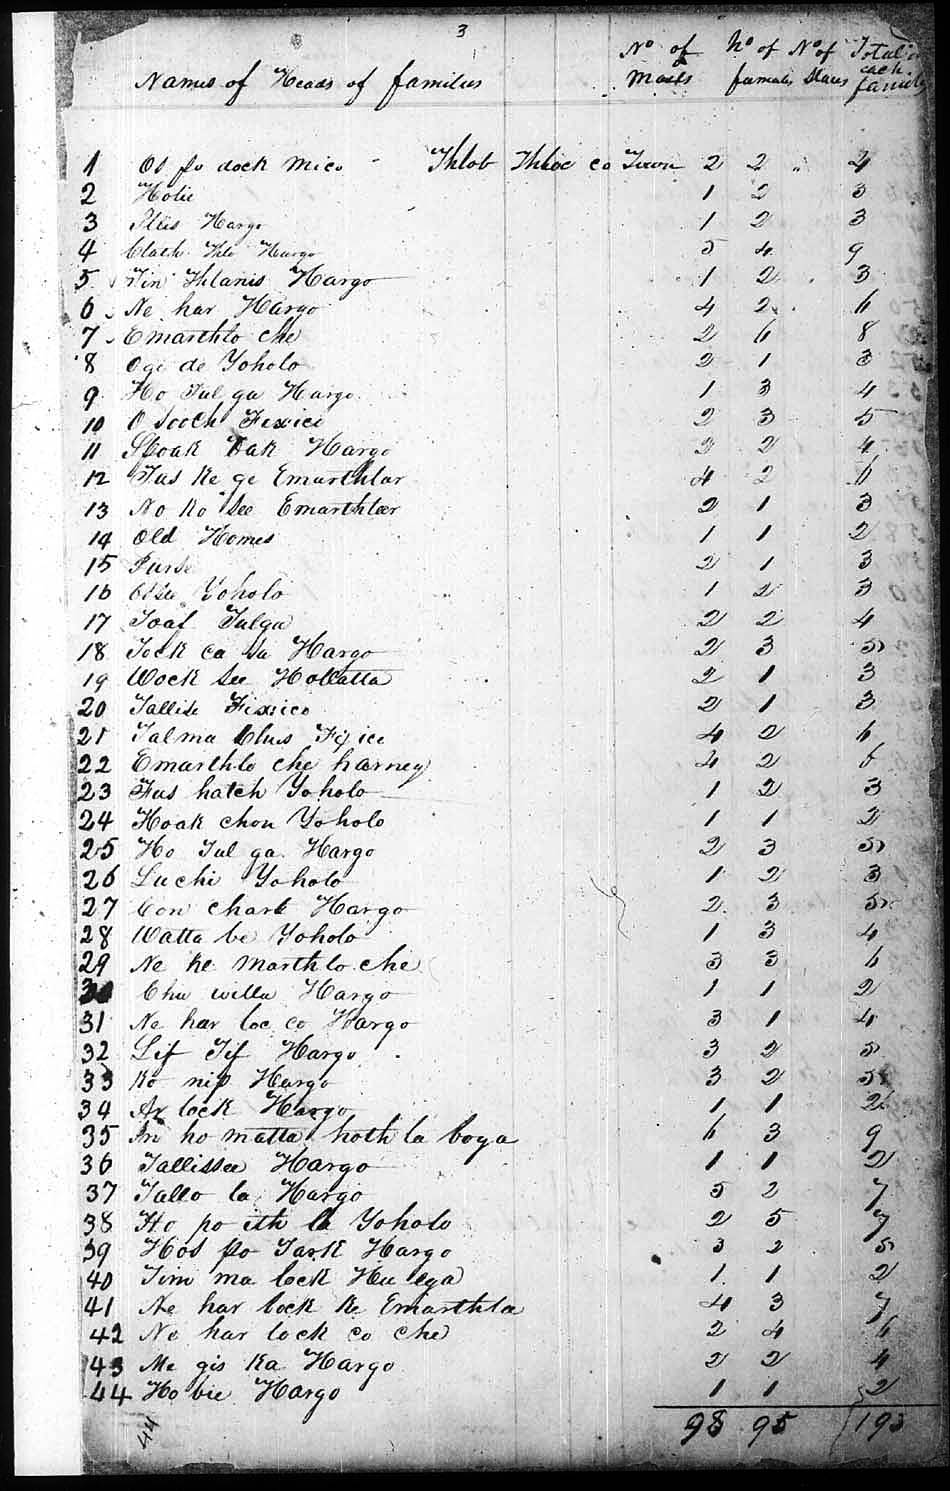 3
Names of Heads of families No of Males No of females No of Slaves Total in each family
1 Os po dock Mico - Thlob Thloc co Town 2 2 " 4
2 Holie 1 2 3
3 Hargo 1 2 3
4 Clath Thlo Hargo 5 4 9
5 Tin Thlanis Hargo 1 2 3
6 Ne har Hargo 4 2 6
7 Emarthlo che 2 6 8
8 Ogi de Yoholo 2 1 3
9 Ho Tul ga Hargo 1 3 4
10 O Sooch Fixico 2 3 5
11 Hargo 2 2 4
12 Tus Ke ge Emarthlar 4 2 6
13 No Ko See Emarthlar 2 1 3
14 Old Homes 1 1 2
15 2 1 3
16 Yoholo 1 2 3
17 Toaf Tulga 2 2 4
18 Tock ca Su Hargo 2 3 5
19 Wock See Hollatta 2 1 3
20 Tallise Fixico 2 1 3
21 Talma Chus Fixico 4 2 6
22 Emarthlo che harney 4 2 6
23 Fus hatch Yoholo 1 2 3
24 Hoak chon Yoholo 1 1 2
25 Ho Tul ga Hargo 2 3 5
26 Luchi Yoholo 1 2 3
27 Con chart Hargo 2 3 5
28 Watta be Yoholo 1 3 4
29 Ne he Marthlo che 3 3 6
30 Chu willa Hargo 1 1 2
31 Ne har loc co Hargo 3 1 4
32 Lif Tif Hargo 3 2 5
33 Ko nip Hargo 3 2 5
34 Ar lock Hargo 1 1 2
35 In ho matta hoth la boya 6 3 9
36 Tallissee Hargo 1 1 2
37 Tallo la Hargo 5 2 7
38 Ho po ith la Yoholo 2 5 7
39 Hos po Tark Hargo 3 2 5
40 Tim ma lock 1 1 2
41 Ne har lock Ke Emarthla 4 3 7
42 Ne har lock co che 2 4 6
43 Me gis Ka Hargo 2 2 4
44 Ho bie Hargo 1 1 2
98 95 193
44